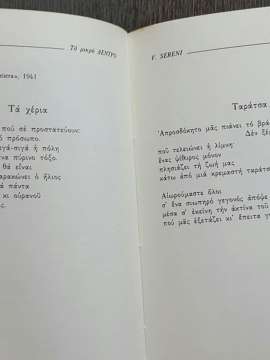 Τὸ μικρὸ ΔΕΝΤΡΟ
1941
Τὰ χέρια
ποὺ σὲ προστατεύουν:
ὸ πρόσωπο.
ιγά-σιγά ἡ πόλη
να πύρινο τόξο.
θὰ εἶναι
αρακώνει ὁ ἥλιος
ὰ πάντα
κι οὐρανοῦ
V. SERENI
Ταράτσα
Ἀπροσδόκητο μᾶς πιάνει τὸ βρά
Δὲν ξέ
ποῦ τελειώνει ἡ λίμνη·
ἕνας ψίθυρος μόνον
πλησιάζει τὴ ζωή μας
κάτω ἀπὸ μιὰ κρεμαστὴ ταράτσ
Αἰωρούμαστε ὅλοι
σ' ἕνα σιωπηρὸ γεγονὸς ἀπόψε
μέσα σ' ἐκείνη τὴν ἀκτίνα τοῦ
ποὺ μᾶς ἐξετάζει κι' ἔπειτα γ